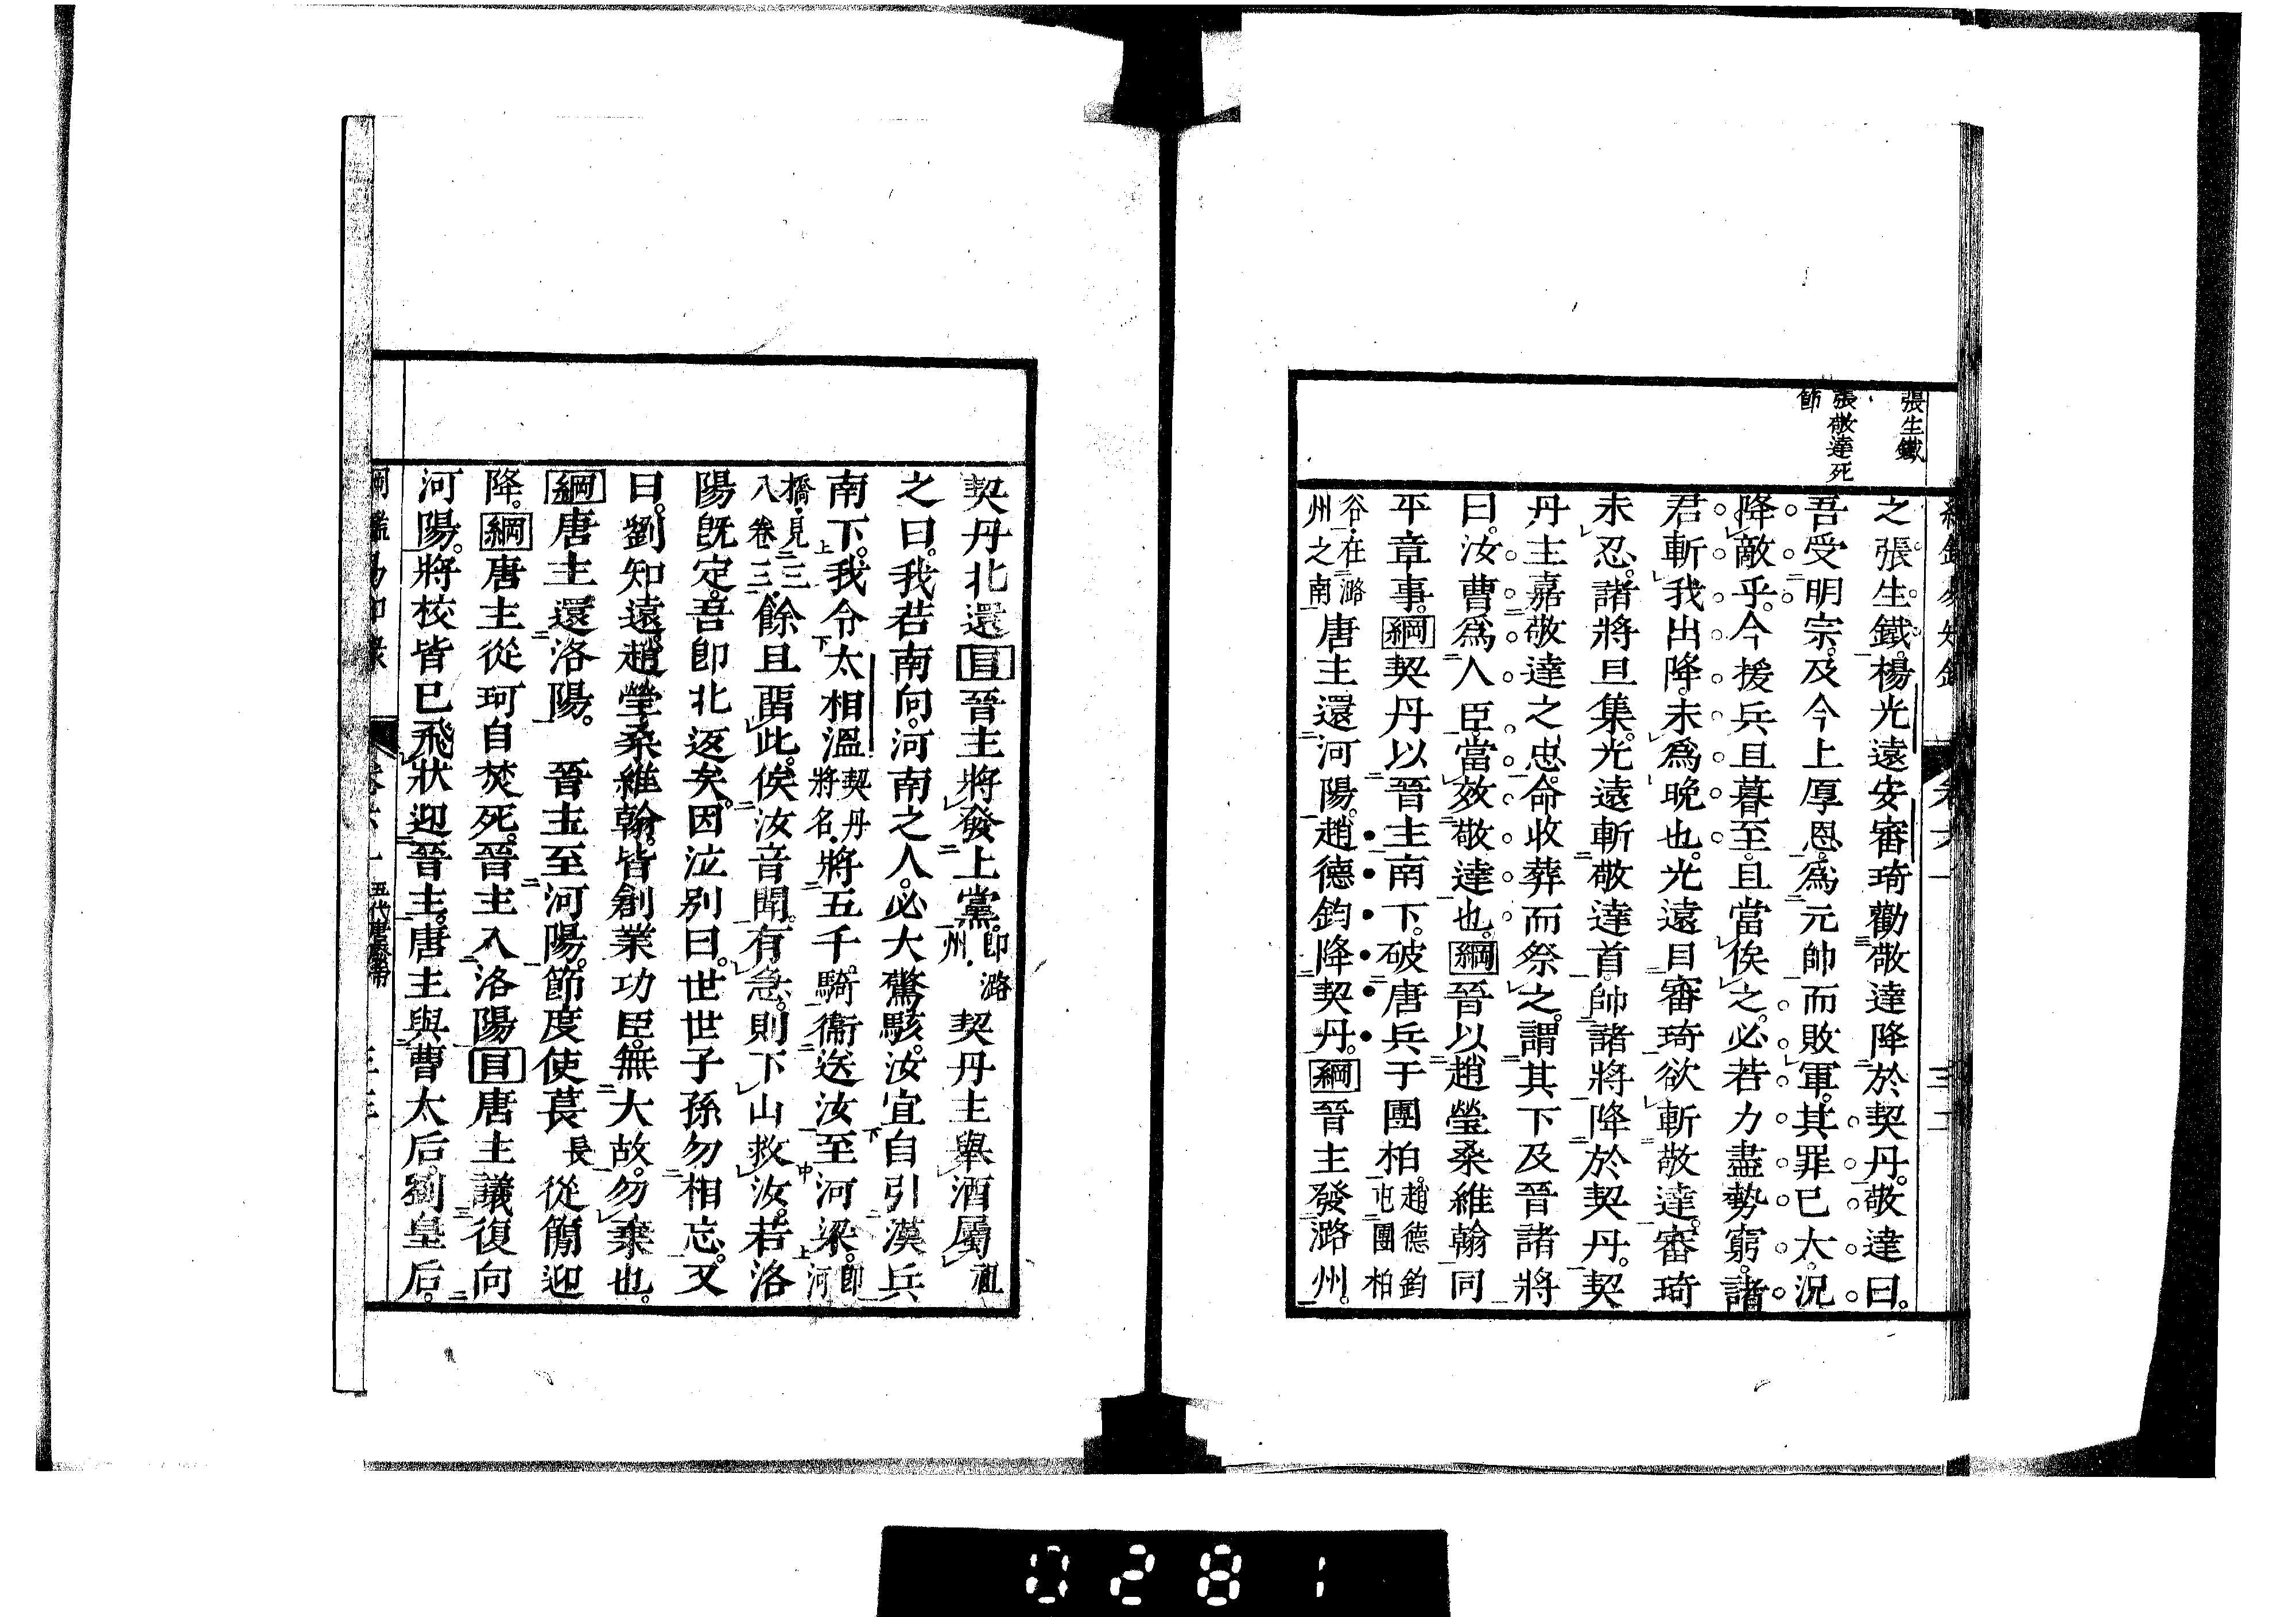 張生鐵
張敬達死
節
之張生鐵。楊光遠安審琦勸敬達降於契丹。敬達曰。
吾受明宗。及今上厚恩。爲元帥而敗軍。其罪已大。況
降敵乎。今援兵旦暮至。且當俟之。必若力盡勢窮。諸
君斬我出降。未爲晚也。光遠目審琦欲斬敬達。審琦
未忍。諸將旦集。光遠斬敬達首。帥諸將降於契丹。契
丹主嘉敬達之忠。命收葬而祭之。謂其下及晉諸將
曰。汝曹爲人臣。當效敬達也。綱晉以趙瑩桑維翰同
平章事。綱契丹以晉主南下。破唐兵于團柏。趙德鈞屯團柏
谷。在潞州之南唐主還河陽。趙德鈞降契丹。綱晉主發潞州。
契丹北還目晉主將發上黨。卽潞州。契丹主舉酒屬祖
之曰。我若南向。河南之人。必大驚駭。汝宜自引漢兵
南下。我令太相溫契丹將名。將五千騎。衞送汝至河梁。卽河
橋。見三八卷三。餘且畱此。俟汝音聞。有急。則下山救汝。若洛
陽旣定。吾卽北返矣。因泣別曰。世世子孫勿相忘。又
曰。劉知遠。趙瑩。桑維翰。皆創業功臣。無大故。勿棄也。
綱唐主還洛陽。 晉主至河陽。節度使萇長從簡迎
降。綱唐主從珂自焚死。晉主入洛陽目唐主議復向
河陽。將校皆已飛狀迎晉主。唐主與曹太后。劉皇后。
五代唐廢帝
0281